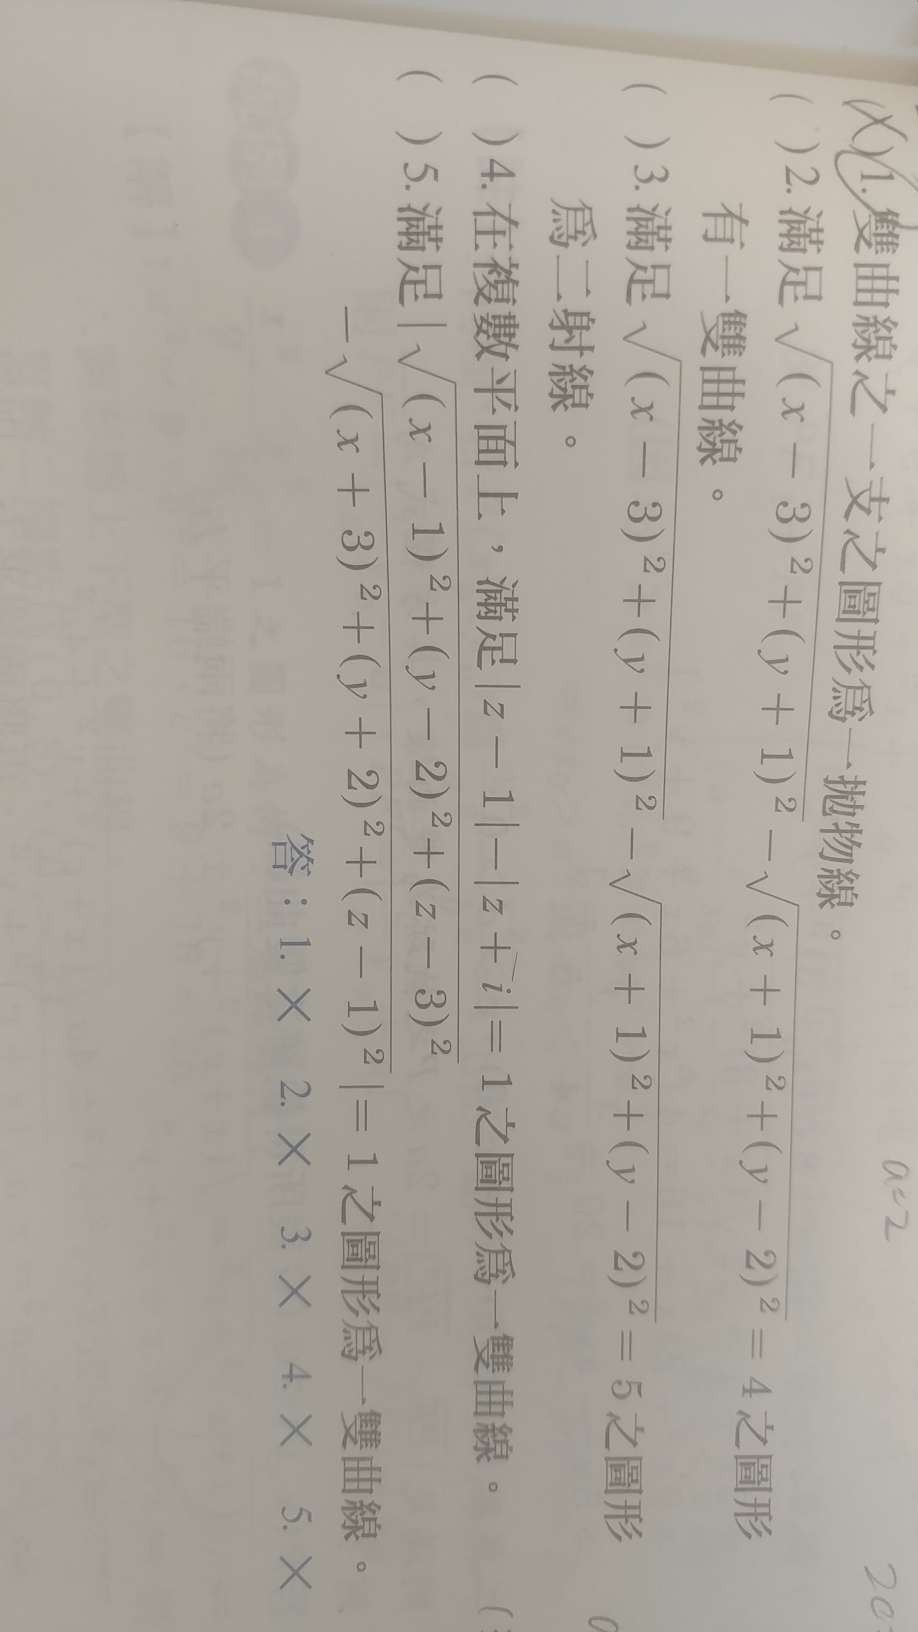 (X)1.雙曲線之一支之圖形為一拋物線。
a=2
( )2.滿足√(x－3)²＋(y＋1)²－√(x＋1)²＋(y－2)²＝4之圖形
有一雙曲線。
( )3.滿足√(x－3)²＋(y＋1)²－√(x＋1)²＋(y－2)²＝5之圖形
為二射線。
( )4.在複數平面上，滿足|z－1|－|z＋i|＝1之圖形為一雙曲線。
( )5.滿足|√(x－1)²＋(y－2)²＋(z－3)²
－√(x＋3)²＋(y＋2)²＋(z－1)²|＝1之圖形為一雙曲線。
答：1.× 2.× 3.× 4.× 5.×